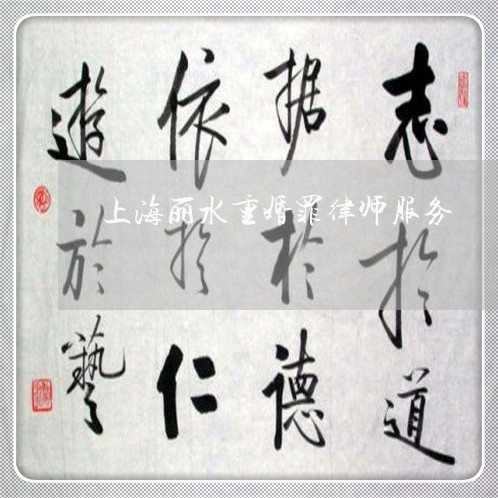 志於道
据於德
依於仁
遊於藝
上海丽水重婚罪律师服务